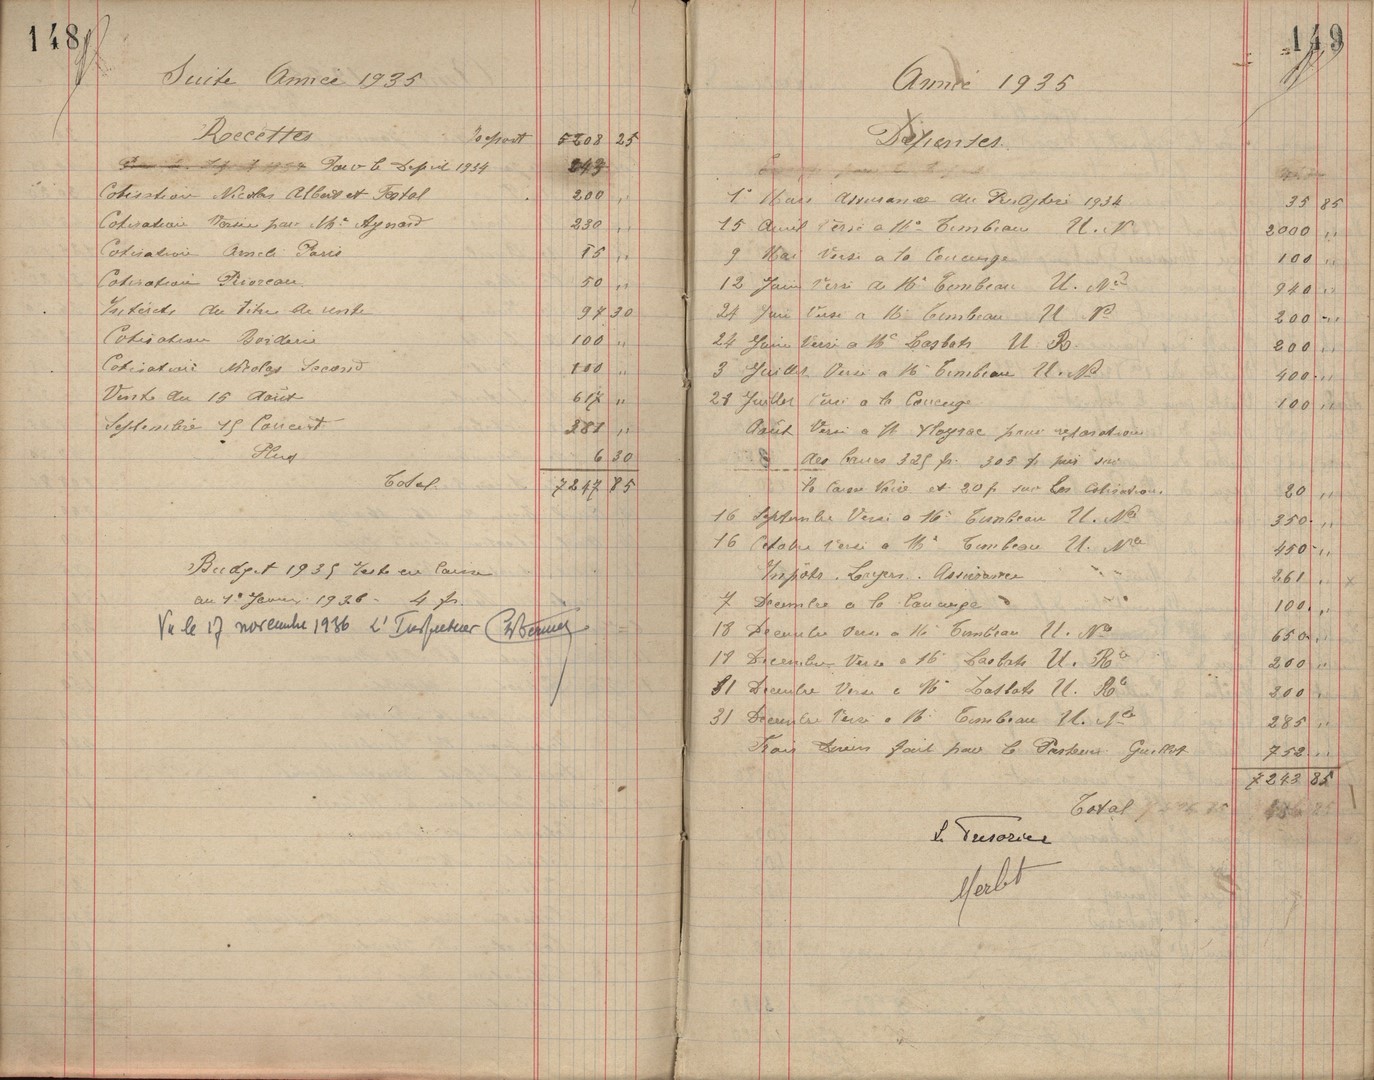 148
Suite Année 1935
Recettes Report 5208 25
Pour le Déficit 1934 243
Cotisation Nicolas Albert et Total 200 "
Cotisation Versée par Mr Aynard 230 "
Cotisation Paris 15 "
Cotisation 50 "
Intérêts du Titre de rente 97 30
Cotisation Borderie 100 "
Cotisation Nicolas Second 100 "
Vente du 15 Août 617 "
Septembre 15 Concert 281 "
Plus 6 30
Total 7247 85
Budget 1935 reste en Caisse
au 1er Janvier 1936 - 4 fr.
Vu le 17 novembre 1936 L'Inspecteur
149
Année 1935
Dépenses
1er Mars Assurance du 1934 35 85
15 Avril Versé à Mr Tembeau U. N 2000 "
9 Mai Versé à la Concierge 100 "
12 Juin Versé à Mr Tembeau U. Nle 940 "
24 Juin Versé à Mr Tembeau U Nle 200 "
24 Juin Versé à Mr Lasbats U R 200 "
3 Juillet Versé à Mr Tembeau U. Nle 400 "
21 Juillet Versé à la Concierge 100 "
Août Versé à M. pour réparations
des 325 fr. 305 fr pris sur
la et 20 fr sur les Cotisations 20 "
16 Septembre Versé à Mr Tembeau U. Nle 350 "
16 Octobre Versé à Mr Tembeau U. Nle 450 "
Impôts. Loyers. Assurance 261 "
7 Décembre à la Concierge 100 "
18 Décembre Versé à Mr Tembeau U. Nle 650 "
19 Décembre Versé à Mr Lasbats U. Rle 200 "
31 Décembre Versé à Mr Lasbats U. Rle 200 "
31 Décembre Versé à Mr Tembeau U. Nle 285 "
Frais Divers fait par le Pasteur Guillot 752 "
7243 85
Total
Le Trésorier
Merlet